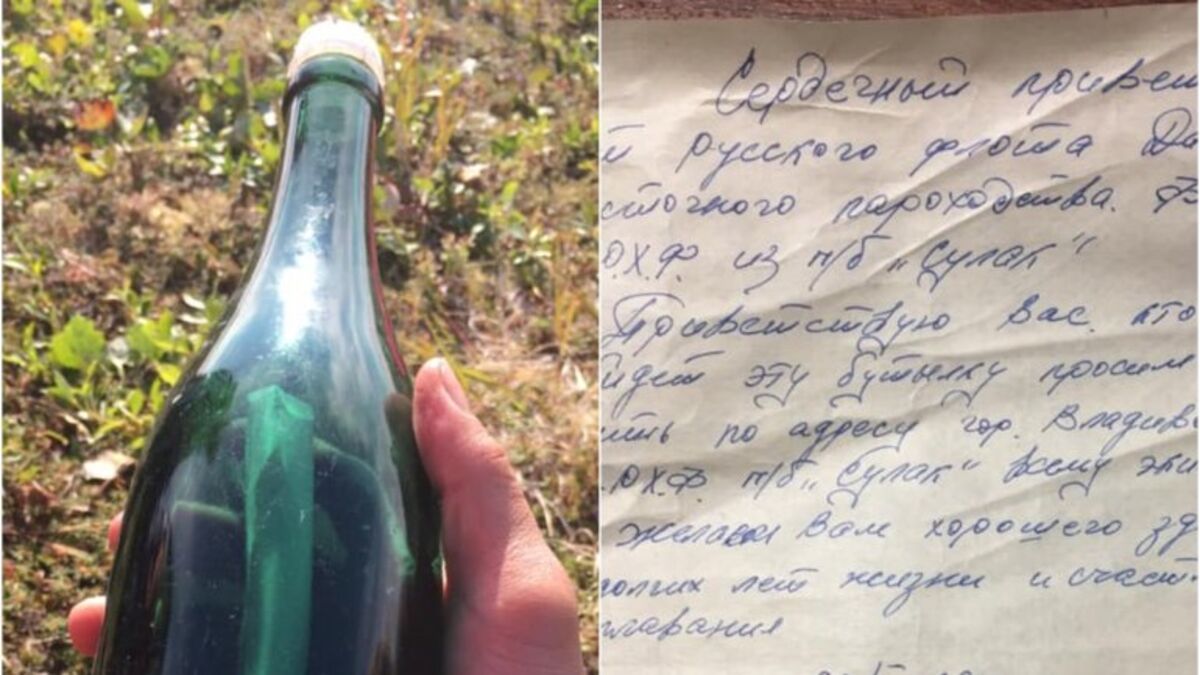 Сердечный привет
й русского флота Да
сточного пароходства.
.Х.Ф. из п/б „Сулак"
Приветствую Вас. кто
йдет эту бутылку просим
ить по адресу гор. Владиво
.Ю.Х.Ф. п/б „Сулак" всему эки
желаем Вам хорошего зд
олгих лет жизни и счаст
плавания